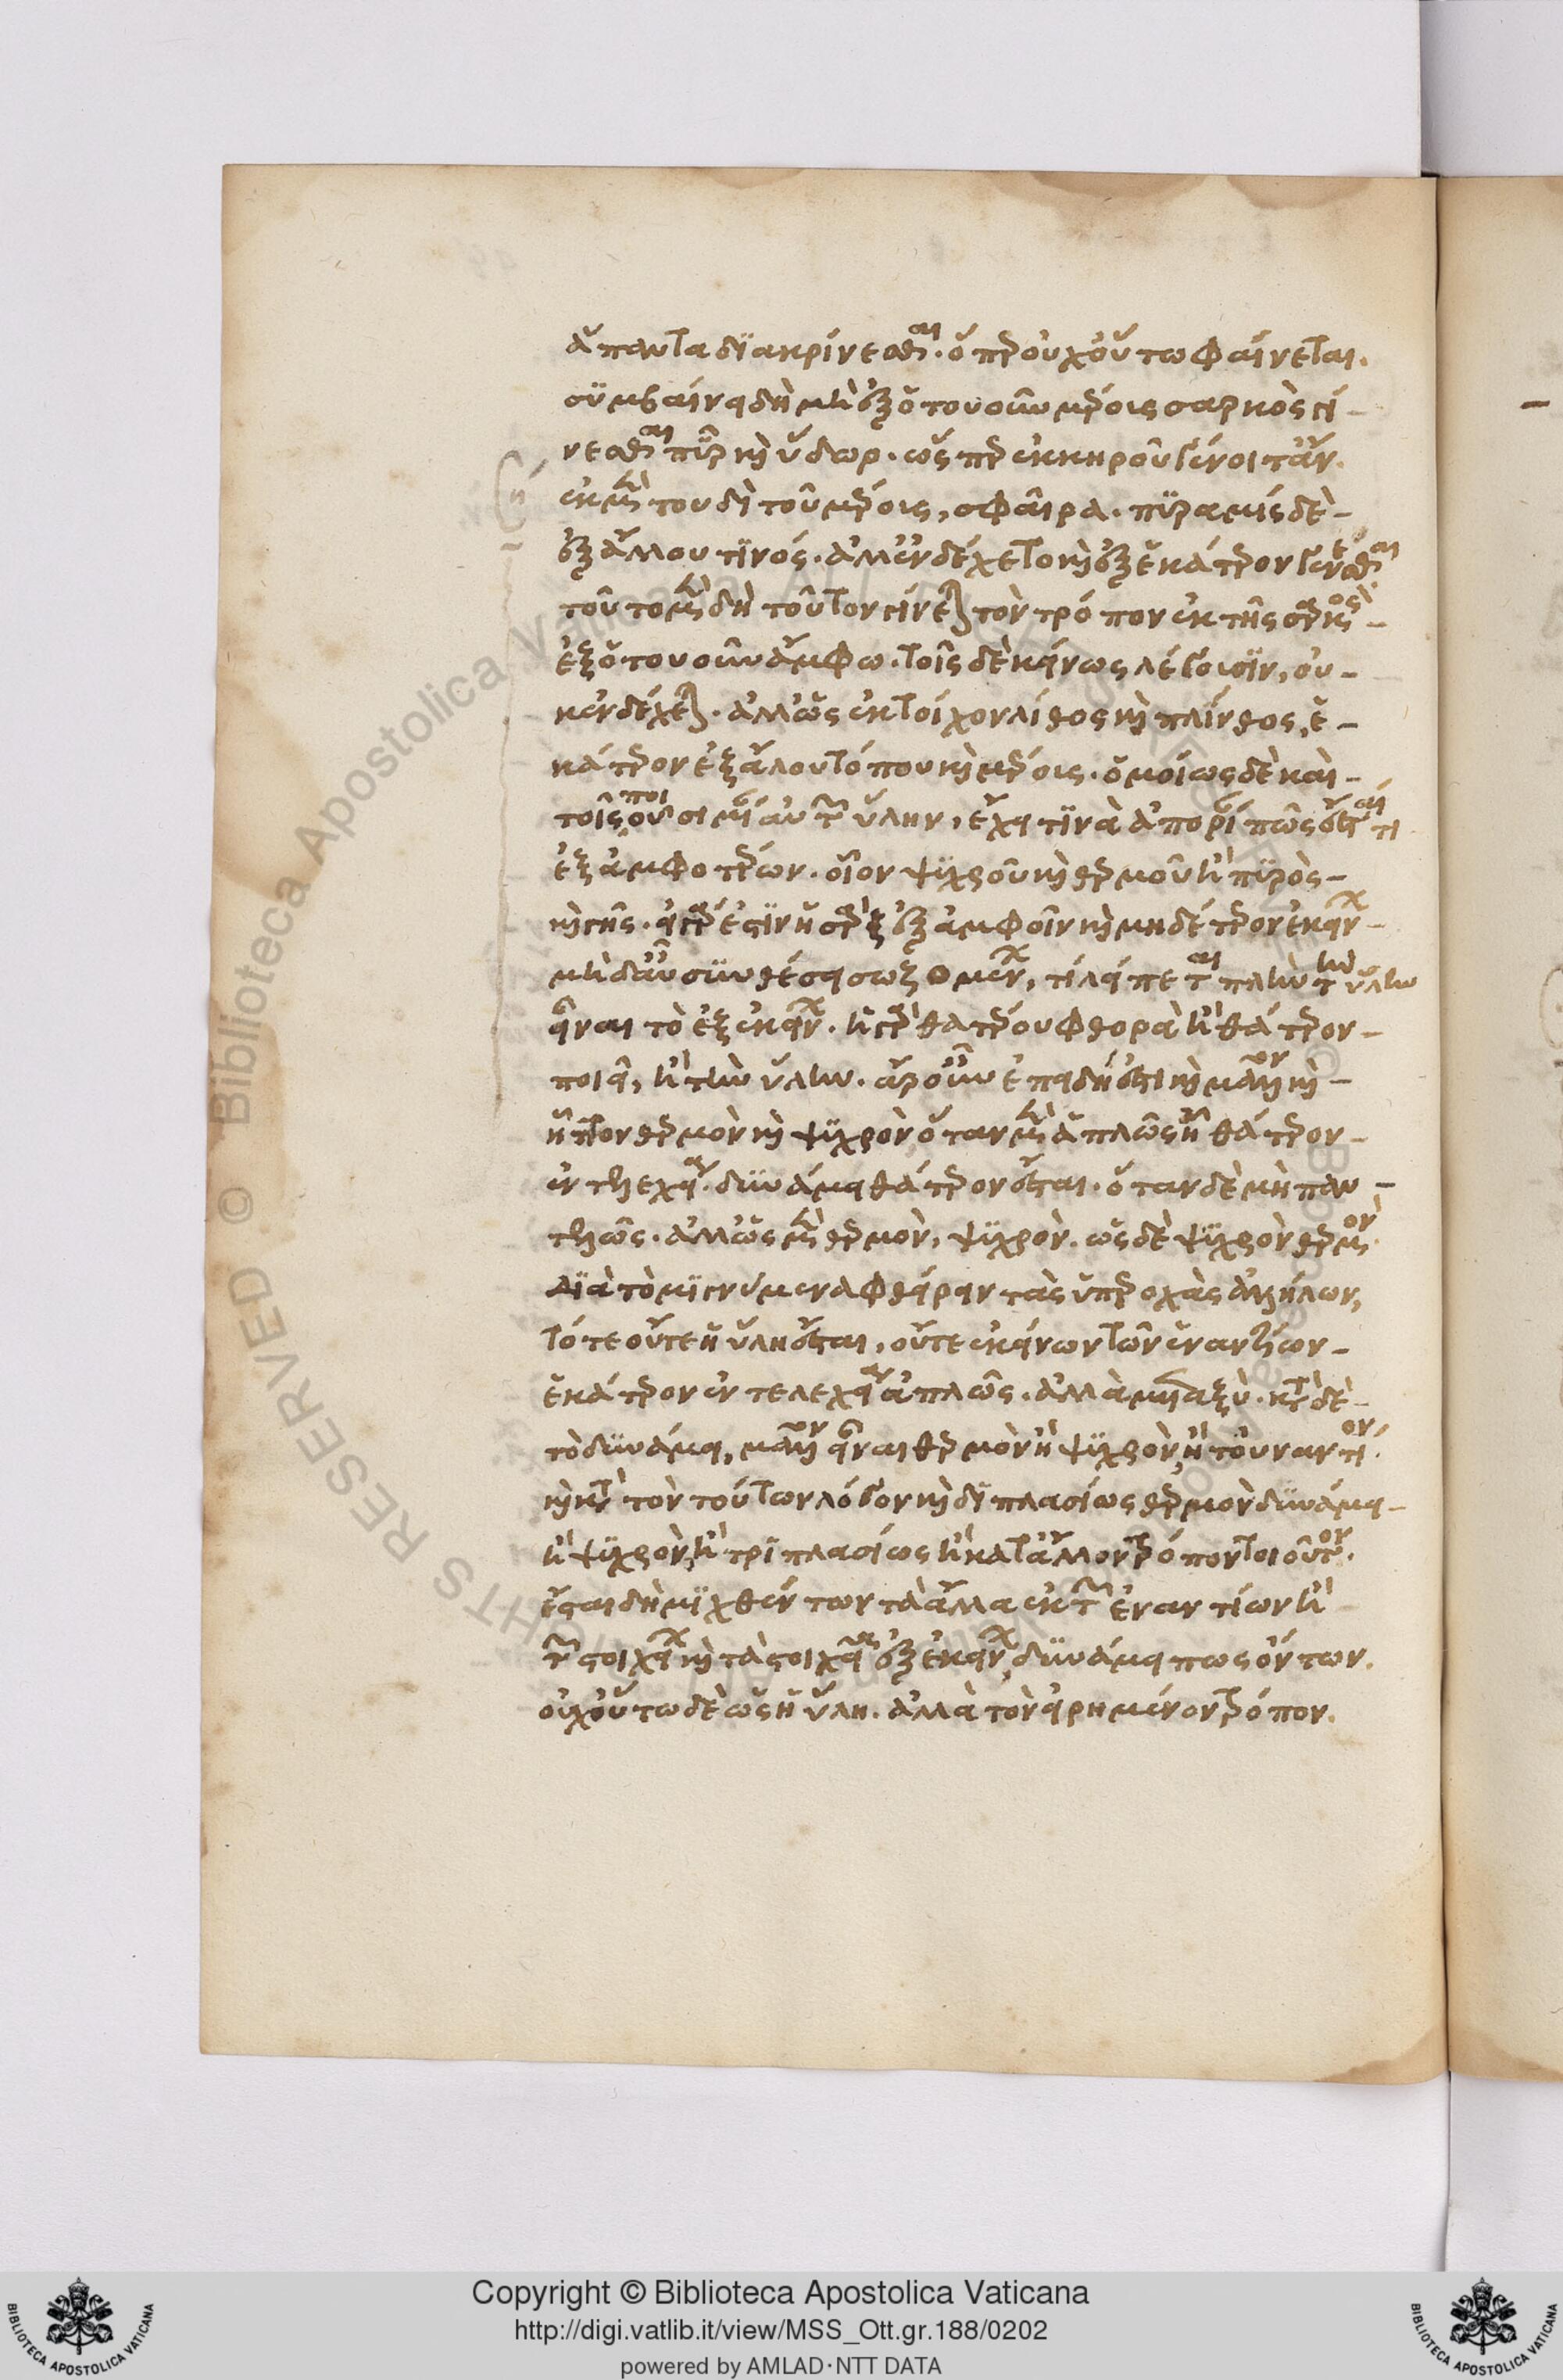 ἅπαντα διακρίνεσθαι. ὅπερ οὐχ οὕτω φαίνεται.
συμβαίνει δὴ μὴ ἐξ ὁτουοῦν μέρους σαρκὸς γί-
νεσθαι πῦρ καὶ ὕδωρ. ὥσπερ ἐκ κηροῦ γένοιτ' ἂν.
ἐκ μὲν τουδὶ τοῦ μέρους, σφαῖρα. πυραμὶς δὲ-
ἐξ ἄλλου τινός. ἀλλ' ἐνδέχετο καὶ ἐξ ἑκάτερον γενέσθαι.
τοῦτο μὲν δὴ τοῦτον γίνεται τὸν τρόπον ἐκ τῆς σαρκὸς-
ἐξ ὁτουοῦν ἄμφω. τοῖς δὲ κείνως λέγουσιν, οὐ-
κ ἐνδέχεται. ἀλλ' ὡς ἐκ τοίχου λίθος καὶ πλίνθος, ἑ-
κάτερον ἐξ ἄλλου τόπου καὶ μέρους. ὁμοίως δὲ καὶ-
τοῖς ποιοῦσι μίαν αὐτῶν ὕλην, ἔχει τινὰ ἀπορίαν πῶς ἔσται τι
ἐξ ἀμφοτέρων. οἷον ψυχροῦ καὶ θερμοῦ ἢ πυρὸς-
καὶ γῆς. εἰ γάρ ἐστιν ἡ σὰρξ ἐξ ἀμφοῖν καὶ μηδέτερον ἐκείνων-
μηδ' αὖ σύνθεσις σωζομένων, τί λείπεται πλὴν τὴν ὕλην
εἶναι τὸ ἐξ ἐκείνων. ἡ γὰρ θατέρου φθορὰ ἢ θάτερον-
ποιεῖ, ἢ τὴν ὕλην. ἆρ' οὖν ἐπειδή ἐστι καὶ μᾶλλον καὶ-
ἧττον θερμὸν καὶ ψυχρὸν ὅταν μὲν ἁπλῶς ᾖ θάτερον-
ἐντελεχείᾳ. δυνάμει θάτερον ἔσται. ὅταν δὲ μὴ παν-
τελῶς. ἀλλ' ὡς μὲν θερμὸν, ψυχρόν. ὡς δὲ ψυχρὸν θερμὸν.
διὰ τὸ μιγνύμενα φθείρειν τὰς ὑπεροχὰς ἀλλήλων,
τότε οὔτε ἡ ὕλη ἔσται, οὔτε ἐκείνων τῶν ἐναντίων-
ἑκάτερον ἐντελεχείᾳ ἁπλῶς. ἀλλὰ μεταξὺ. κατὰ δὲ-
τὸ δυνάμει, μᾶλλον εἶναι θερμὸν ἢ ψυχρὸν, ἢ τοὐναντίον.
καὶ κατὰ τὸν τούτων λόγον καὶ διπλασίως θερμὸν δυνάμει-
ἢ ψυχρὸν, ἢ τριπλασίως ἢ κατ' ἄλλον τρόπον τοιοῦτον.
ἔσται δὴ μιχθέντων τἆλλα ἐκ τῶν ἐναντίων ἢ
τῶν στοιχείων καὶ τὰ στοιχεῖα ἐξ ἐκείνων, δυνάμει πως ὄντων.
οὐχ οὕτω δὲ ὡς ἡ ὕλη. ἀλλὰ τὸν εἰρημένον τρόπον.
Copyright © Biblioteca Apostolica Vaticana
http://digi.vatlib.it/view/MSS_Ott.gr.188/0202
powered by AMLAD·NTT DATA